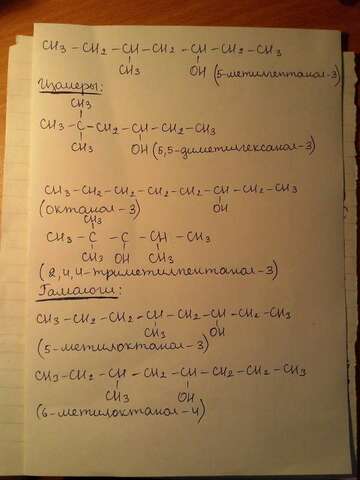 CH3 – CH2 – CH – CH2 – CH – CH2 – CH3
CH3 OH (5-метилгептанол-3)
Изомеры:
CH3
CH3 – C – CH2 – CH – CH2 – CH3
CH3 OH (5,5-диметилгексанол-3)
CH3 – CH2 – CH2 – CH2 – CH2 – CH – CH2 – CH3
(октанол-3) OH
CH3
CH3 – C – C – CH – CH3
CH3 OH CH3
(2,4,4-триметилпентанол-3)
Гомологи:
CH3 – CH2 – CH2 – CH – CH2 – CH – CH2 – CH3
CH3 OH
(5-метилоктанол-3)
CH3 – CH2 – CH – CH2 – CH – CH2 – CH2 – CH3
CH3 OH
(6-метилоктанол-4)